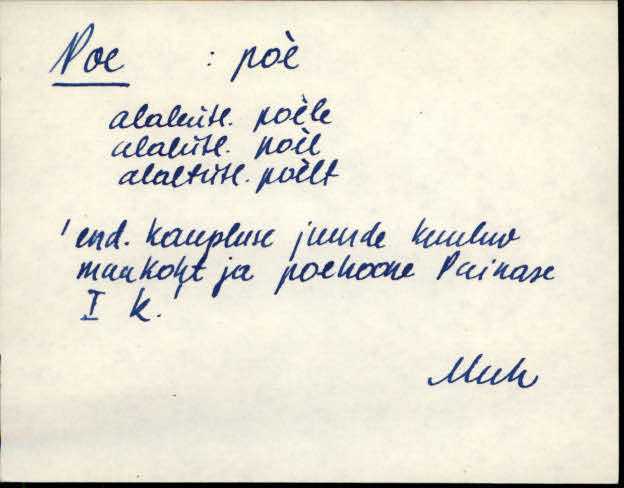 Poe : poè
alaleütl. poèle
alalütl. poèl
alaltütl. poèlt
'end. kaupluse juurde kuuluv
maakoht ja poehoone Painase
I k.'
Muh